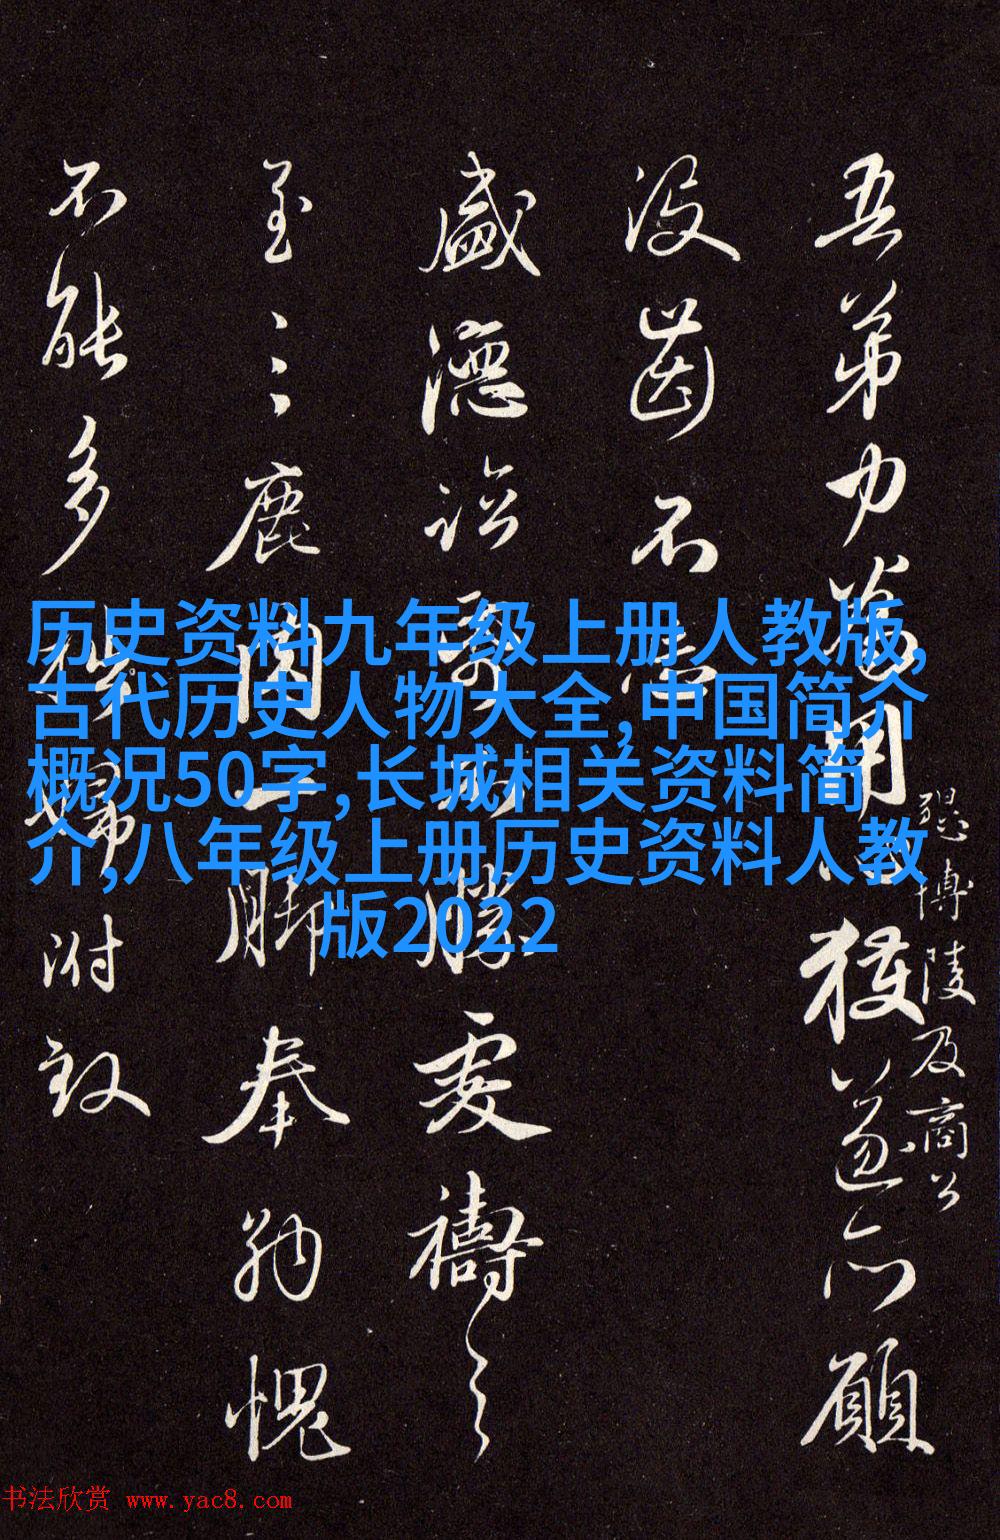 历史资料九年级上册人教版,
古代历史人物大全,中国简介
概况50字,长城相关资料简
介,八年级上册历史资料人教
版2022
吾弟力 用 獲遂心願
博陵及商公
没齒不忘
盛德 憂禱之
至 鹿肉一脚奉 愧
不能多 附
书法欣赏 www.yac8.com